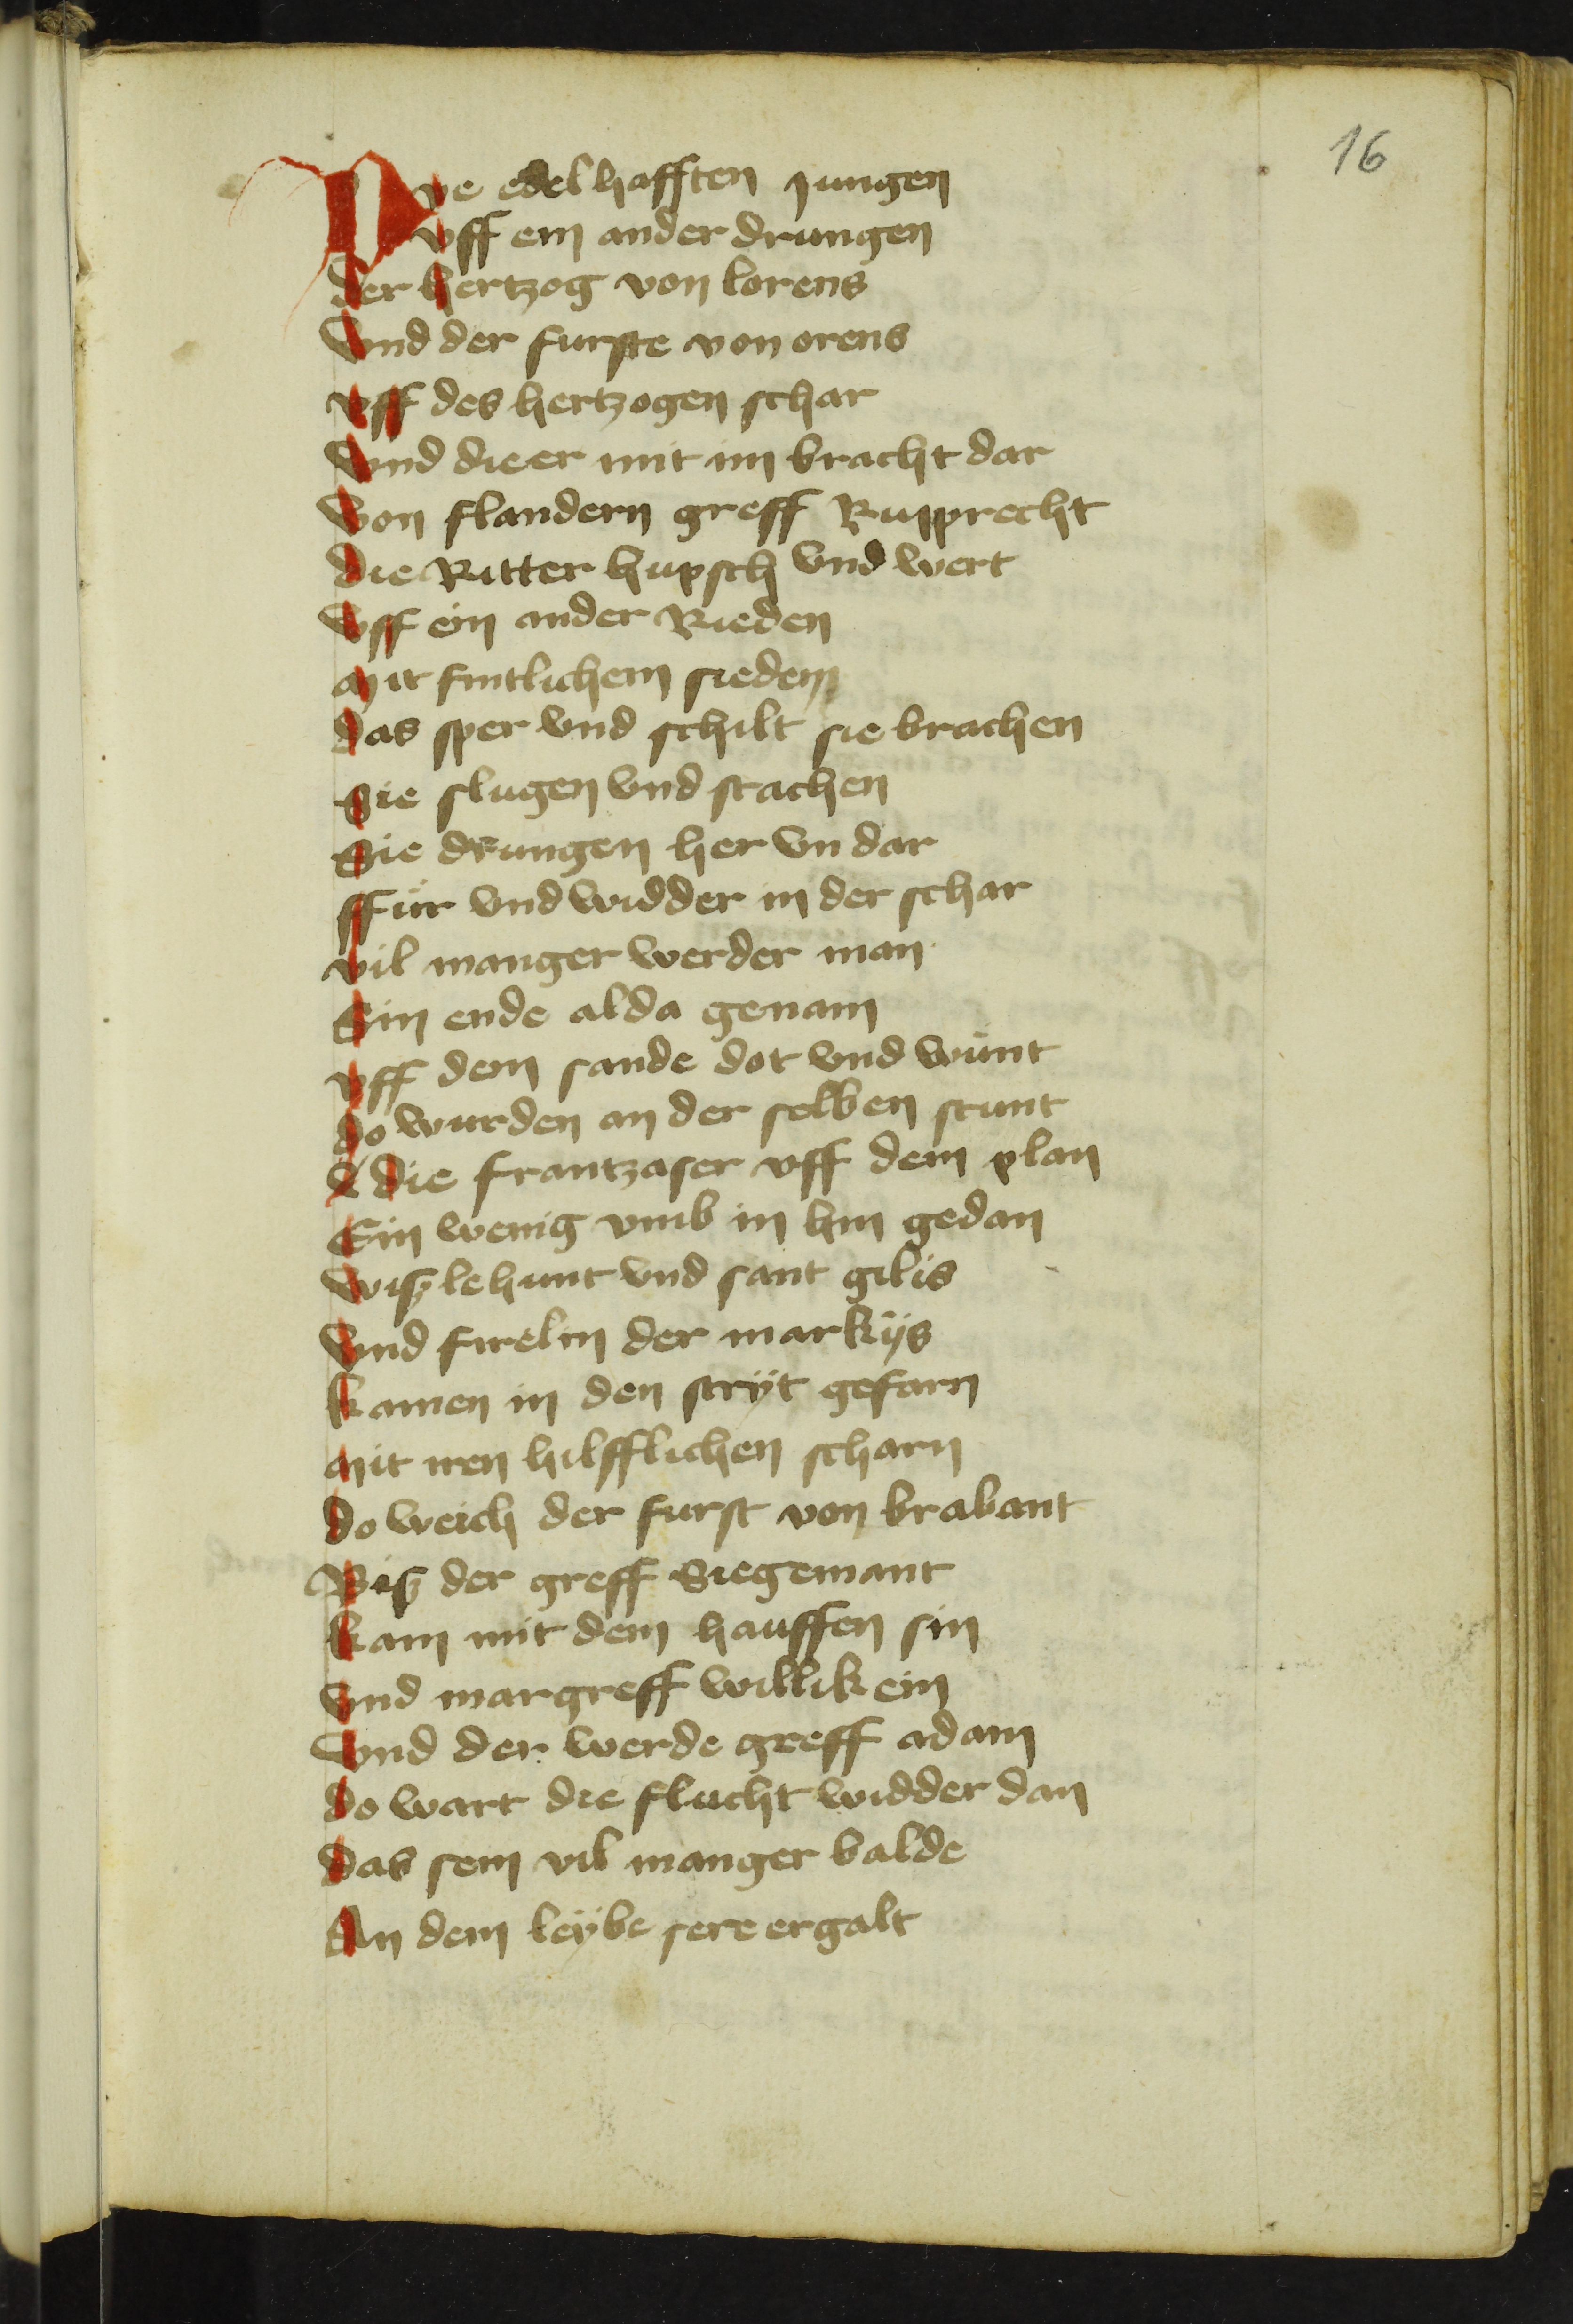 16
Die edelhafften jungen
vff ein ander drungen
der hertzog von lorens
Vnd der furste von orens
vff des hertzogen schar
Vnd die er mit im bracht dar
Von flandern greff Rupprecht
die Ritter hupsch vnd wert
Vff ein ander Rieden
Mit fintlichem sieden
das sper vnd schilt sie brachen
Sie slugen vnd stachen
Sie drungen her vn dar
ffür vnd widder in der schar
vil manger werder man
Sin ende alda genam
vff dem sande dot vnd wünt
do wurden an der selben stunt
die frantzaser vff dem plan
Ein wenig vmb in hin gedan
Wißlehunt vnd sant gilis
Vnd firelin der markÿs
kamen in den strÿt gefarn
Mit iren hilfflichen scharn
do weich der furst von brabant
Biß der greff Siegemant
kam mit dem hauffen sin
Vnd margreff willikein
Vnd der werde greff adam
do wart die flucht widder dan
das sem vil manger balde
An dem leÿbe sere ergalt